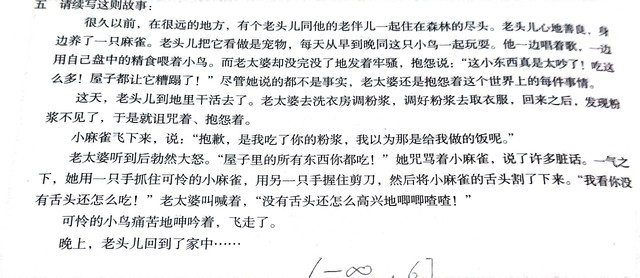 五　请续写这则故事：
很久以前，在很远的地方，有个老头儿同他的老伴儿一起住在森林的尽头。老头儿心地善良，身
边养了一只麻雀。老头儿把它看做是宠物，每天从早到晚同这只小鸟一起玩耍。他一边唱着歌，一边
用自己盘中的精食喂着小鸟。而老太婆却没完没了地发着牢骚，抱怨说：“这小东西真是太吵了！吃这
么多！屋子都让它糟蹋了！”尽管她说的都不是事实，老太婆还是抱怨着这个世界上的每件事情。
这天，老头儿到地里干活去了。老太婆去洗衣房调粉浆，调好粉浆去取衣服，回来之后，发现粉
浆不见了，于是就诅咒着、抱怨着。
小麻雀飞下来，说：“抱歉，是我吃了你的粉浆，我以为那是给我做的饭呢。”
老太婆听到后勃然大怒。“屋子里的所有东西你都吃！”她咒骂着小麻雀，说了许多脏话。一气之
下，她用一只手抓住可怜的小麻雀，用另一只手握住剪刀，然后将小麻雀的舌头割了下来。“我看你没
有舌头还怎么吃！”老太婆叫喊着，“没有舌头还怎么高兴地唧唧喳喳！”
可怜的小鸟痛苦地呻吟着，飞走了。
晚上，老头儿回到了家中……
(-∞, 6]